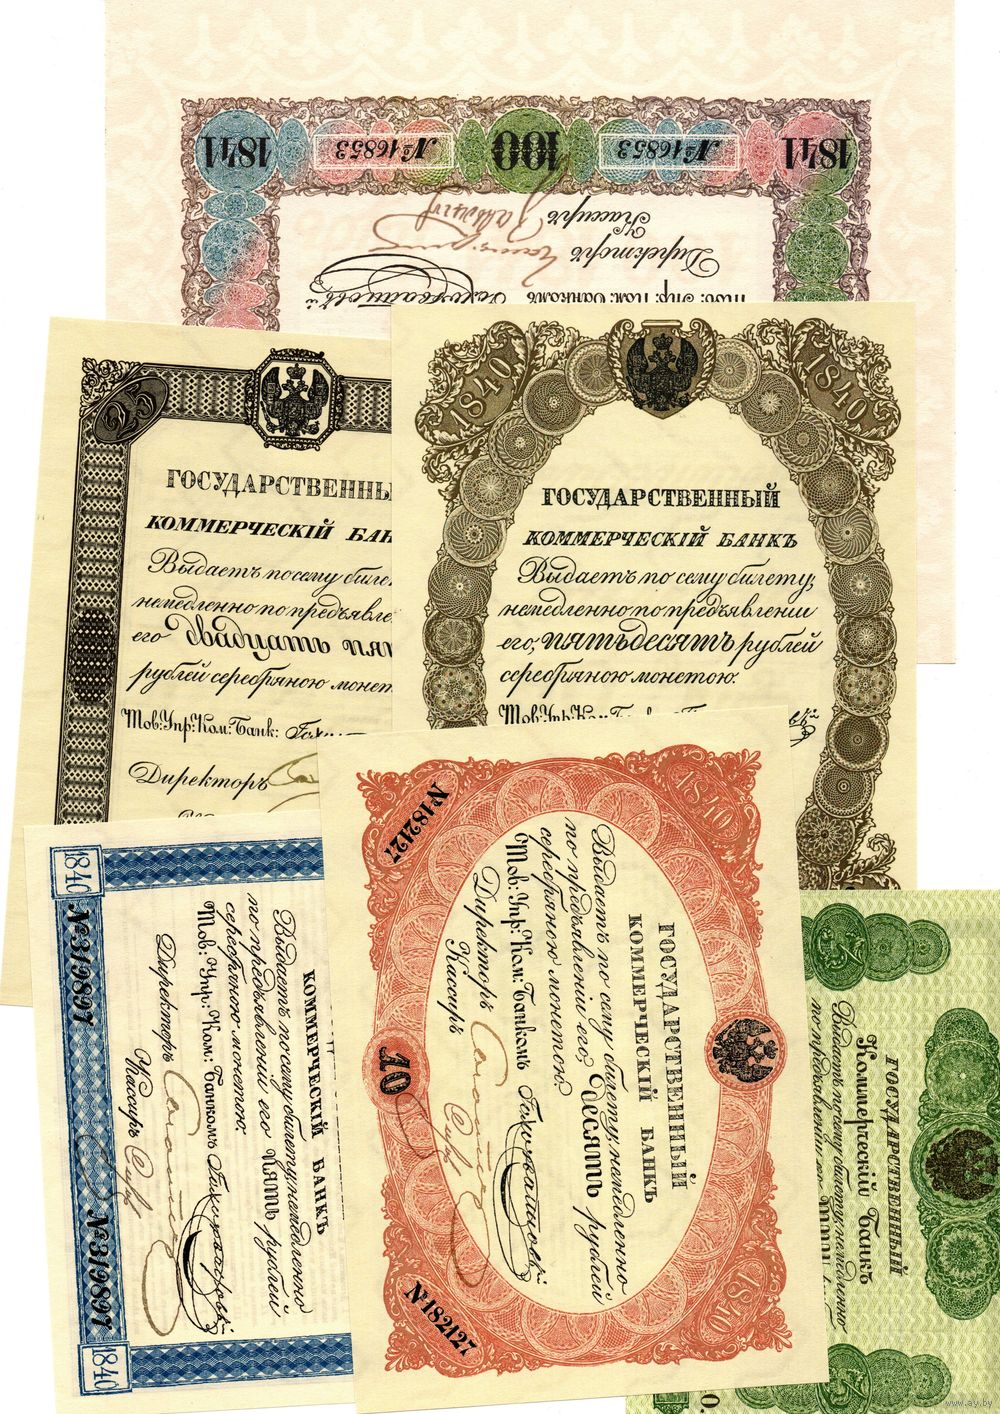 1841
№16853
100
№16853
1841
Кассиръ
Директоръ
Тов: Упр: Ком: банкомъ
25
ГОСУДАРСТВЕННЫ
КОММЕРЧЕСКІЙ БАН
Выдаетъ по сему
немедленно по
его двадцать
рублей серебряною
Тов:Упр:Ком:Банк:
Директоръ
1840
1840
ГОСУДАРСТВЕННЫЙ
КОММЕРЧЕСКІЙ БАНКЪ
Выдаетъ по сему билету,
немедленно по предъявлении
его, пятьдесятъ рублей
серебряною монетою.
Тов:Упр:Ком:
1840
№319897
№319897
1840
КОММЕРЧЕСКІЙ БАНКЪ
Выдаетъ по сему билету, немедленно
по предъявлении его пять рублей
серебряною монетою.
Тов: Упр: Ком: Банкомъ
Директоръ
Кассиръ
№182127
1840
10
ГОСУДАРСТВЕННЫЙ
КОММЕРЧЕСКІЙ БАНКЪ
Выдаетъ по сему билету, немедленно
по предъявленіи его, Десять рублей
серебряною монетою.
Тов: Упр: Ком: Банкомъ
Директоръ
Кассиръ
№182127
1840
ГОСУДАРСТВЕННЫЙ
Коммерческій Банкъ
Выдаетъ по сему билету, немедленно
www.ay.by